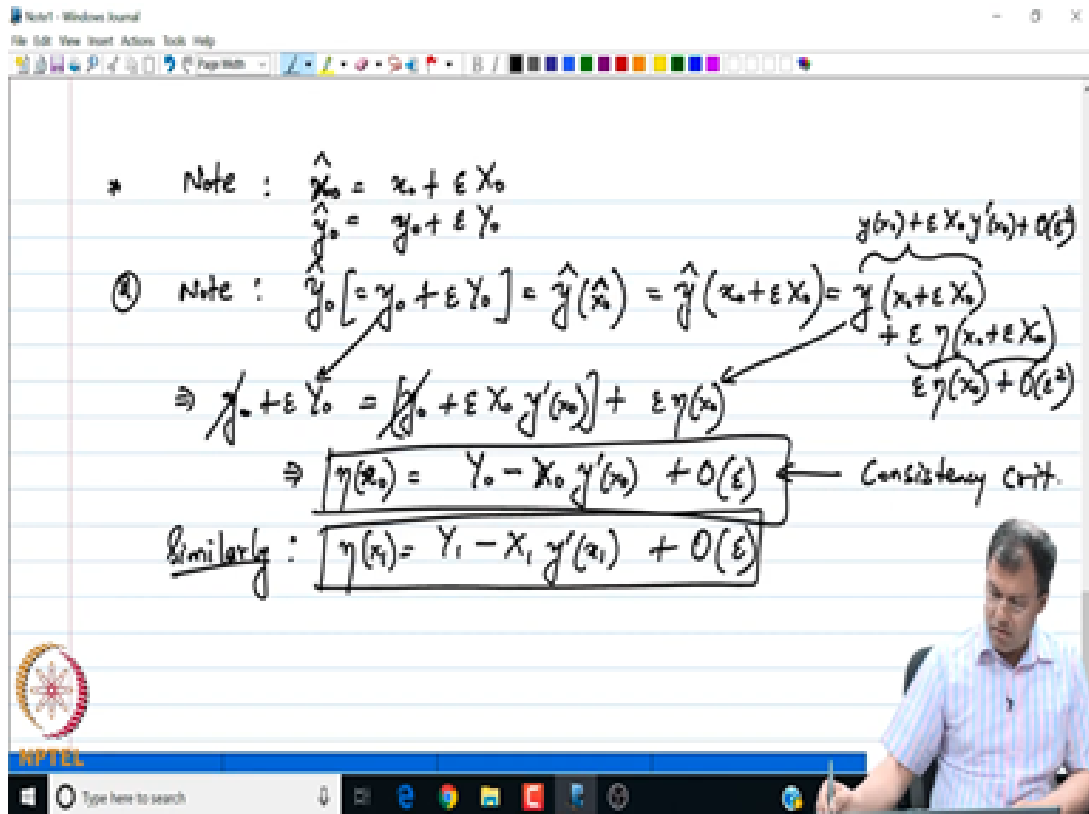 Note1 - Windows Journal
File Edit View Insert Actions Tools Help
Page Width B I
* Note : x̂₀ = x₀ + ε X₀
ŷ₀ = y₀ + ε Y₀
y(x₀) + ε X₀ y'(x₀) + O(ε²)
② Note : ŷ₀ [= y₀ + ε Y₀] = ŷ(x̂₀) = ŷ(x₀ + ε X₀) = y(x₀ + ε X₀)
+ ε η(x₀ + ε X₀)
ε η(x₀) + O(ε²)
⇒ y₀ + ε Y₀ = [y₀ + ε X₀ y'(x₀)] + ε η(x₀)
⇒ η(x₀) = Y₀ - X₀ y'(x₀) + O(ε) ← Consistency Crit.
Similarly : η(x₁) = Y₁ - X₁ y'(x₁) + O(ε)
NPTEL
Type here to search